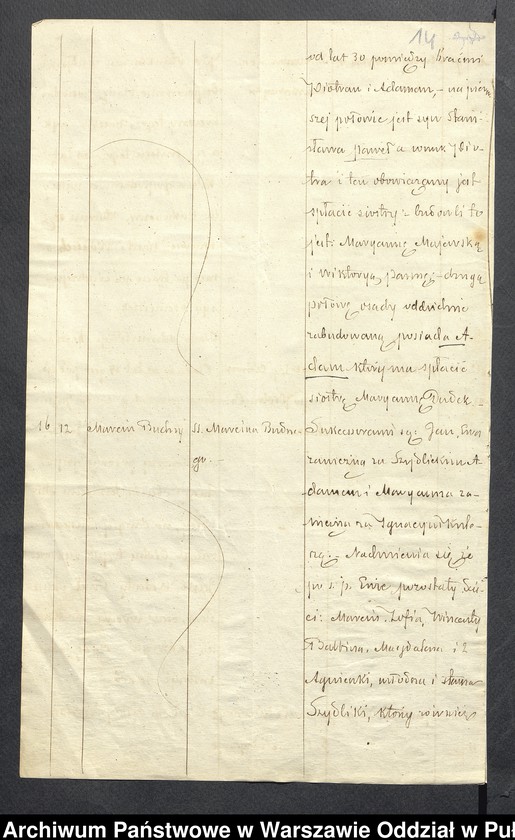 14
od lat 30 pomiędzy Braćmi
Piotrem i Adamem, – na pierw
szej połowie jest syn Stani-
sława paweł a wnuk Pio-
tra i ten obowiązany jest
spłacić siostry z budowli to
jest: Maryannę Majewską
i Wiktoryą pannę – drugą
połowę osady oddzielnie
zabudowaną posiada A-
dam który ma spłacić
siostrę Maryannę Dudek –
16 12 Marcin Budny SS. Marcina Budne- Sukcessorami są: Jan, Ewa
go. – zamężna za Szydlikiem A
damem i Maryanna za-
mężna za Ignacym
Nadmienia się że
po ś. p. Ewie pozostały dzie
ci: Marcin, Zofia, Wincenty
Balbina, Magdalena i 2
Agnieszki, młodsza i starsza
Szydliki, którzy również
Archiwum Państwowe w Warszawie Oddział w Puł